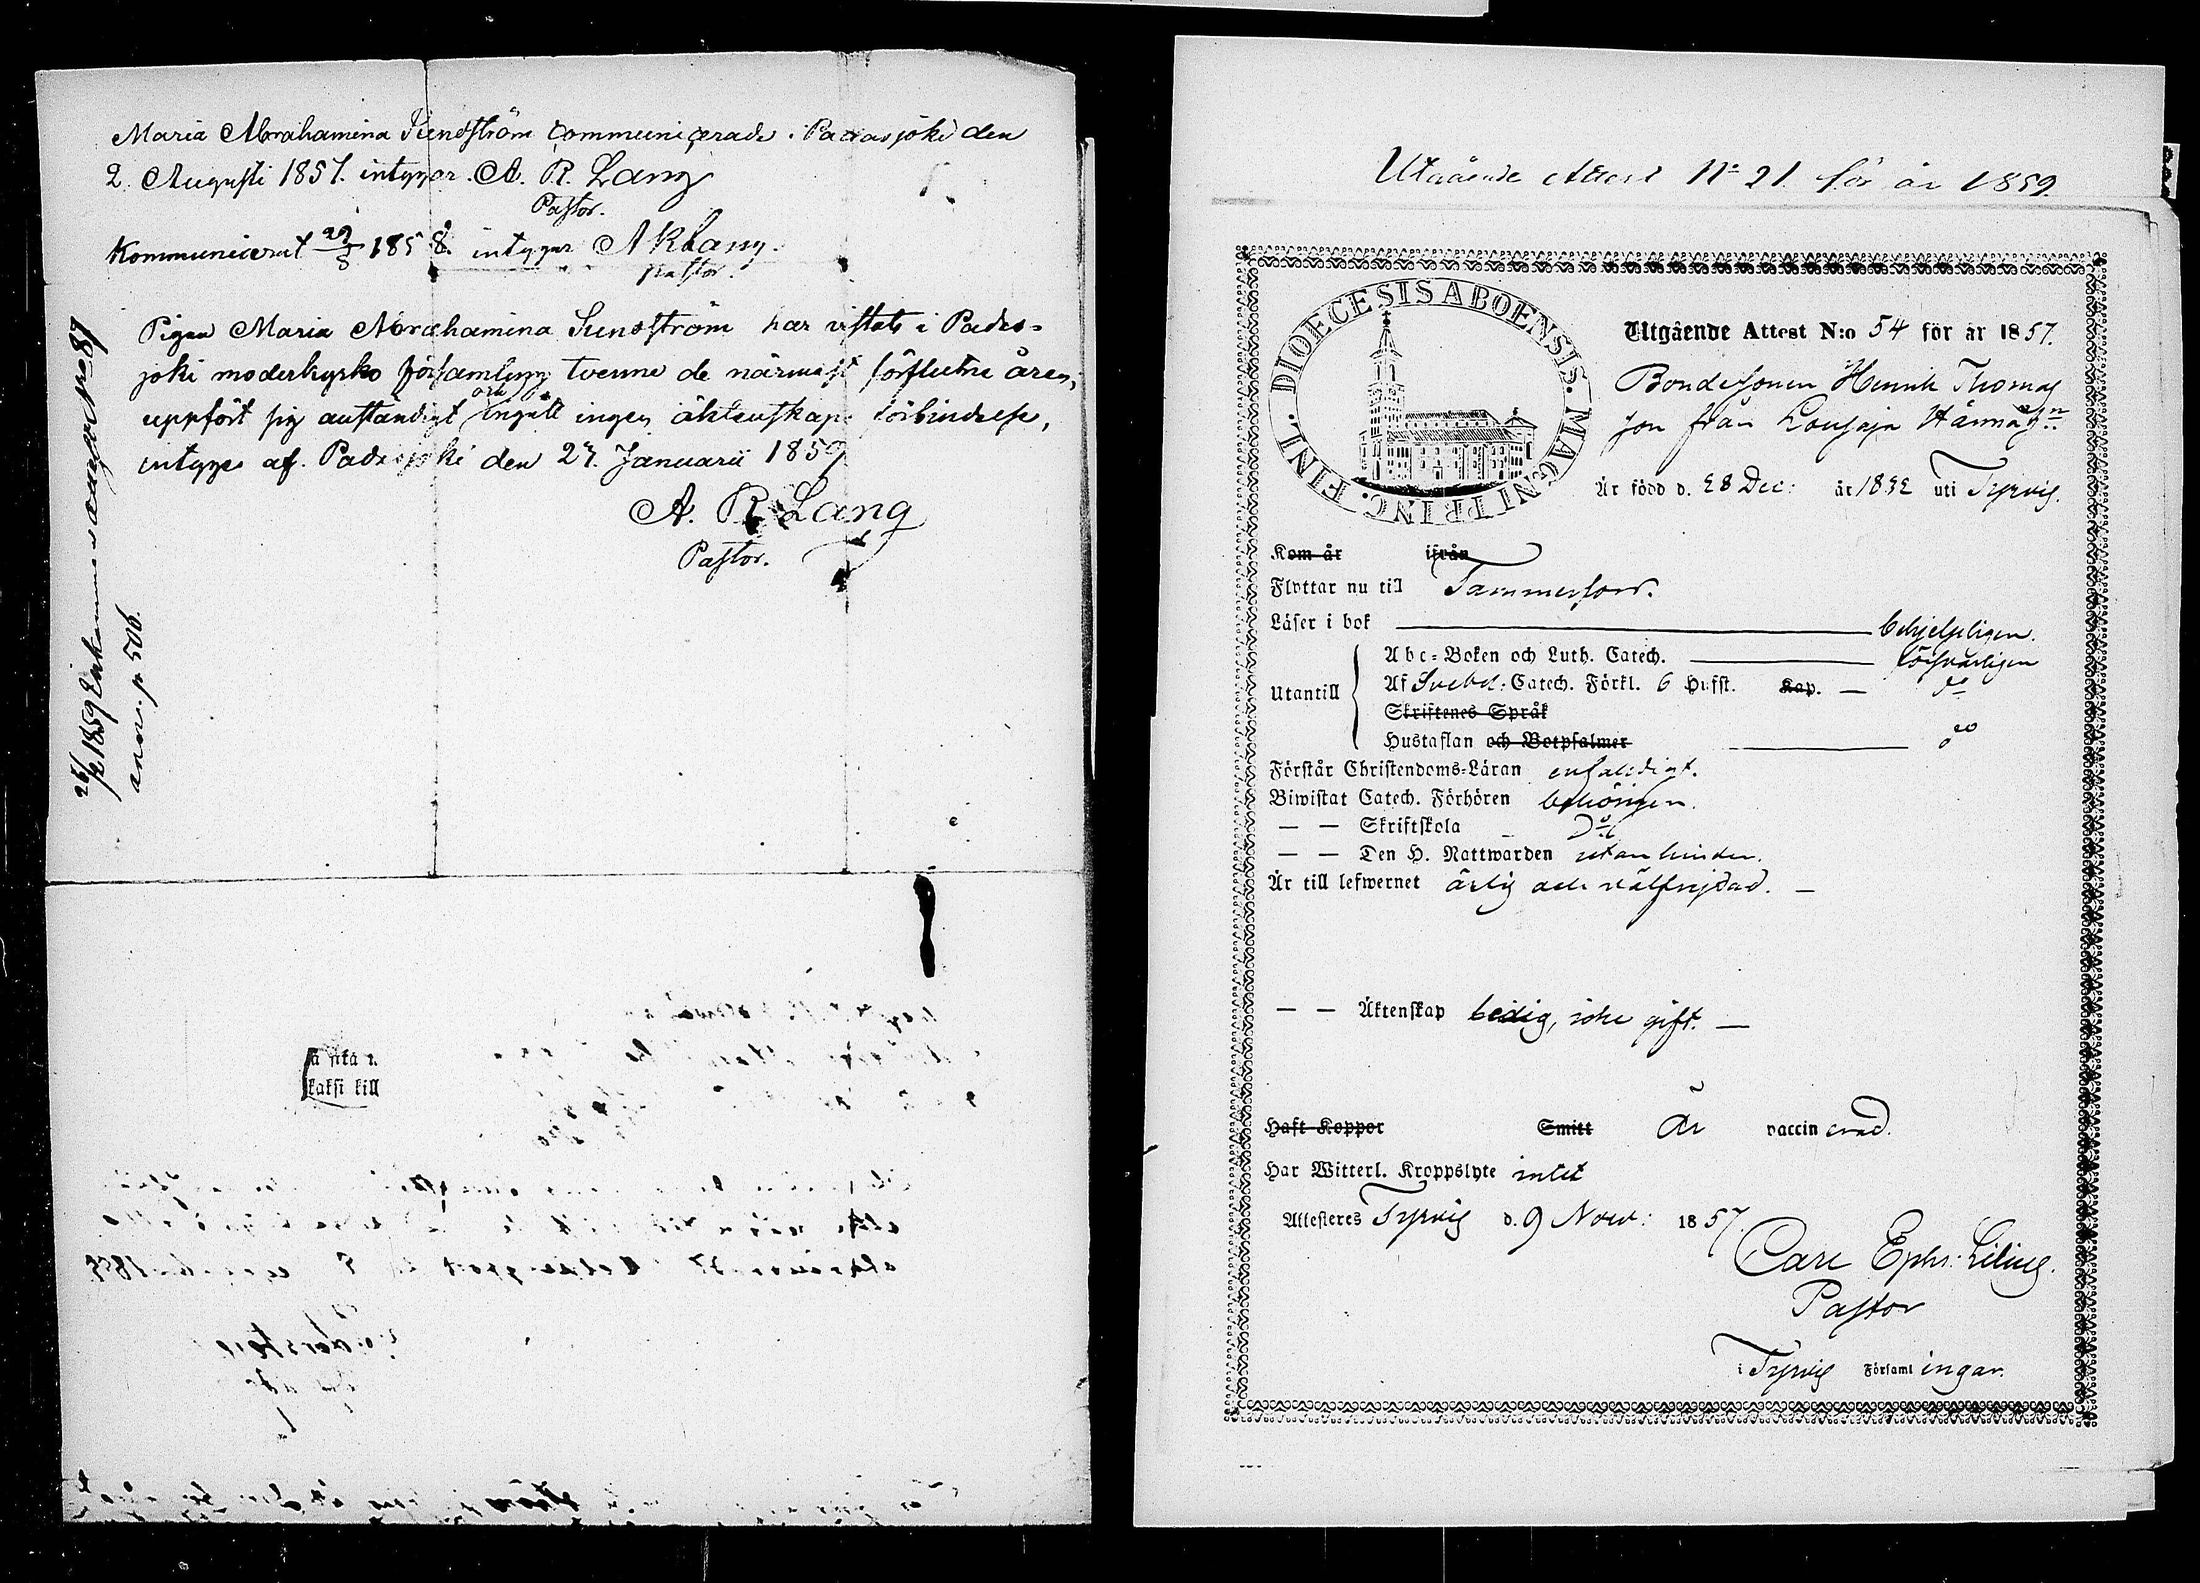 Maria Abrahamina Sundström communicerade i Padasjoki den
2 Augusti 1857. intygar. A. R. Lang
Pastor.
Kommunicerat 29/8 1858. intygar A R Lang.
pastor.
Pigan Maria Abrahamina Sundström har vistats i Padas-
joki moderkyrko församling tvenne de närmast förflutne åren,
uppfört sig anständigt och ingått ingen äktenskaps förbindelse,
intygas af. Padasjoki den 27. Januarii 1859
A. R. Lang
Pastor.
1859
anno. p 506.
a sitä
kaksi kill
Utgående Attest No 21. för år 1859.
DIOECESIS ABOENSIS. MAGNI PRINC. FINL.
Utgående Attest N:o 54 för år 1857.
Bondesonen Henrik Thomas
son från
Är född d. 28 Dec: år 1832 uti Tyrvis.
Kom år ifrån
Flyttar nu till Tammerfors.
Läser i bok behjelpligen.
Utantill
Abc-Boken och Luth. Catech. försvarligen
Af Svebel: Catech. Förkl. 6 Hufst. Kap. — do
Skriftenes Språk
Hustaflan och Botpsalmer do
Förstår Christendoms-Läran enfaldigt.
Biwistat Catech. Förhören behörigen.
— — Skriftskola Do
— — Den H. Nattwarden utan hinder.
Är till lefwernet ärlig och välfrejdad. —
— — Äktenskap ledig, icke gift. —
Haft Koppor Smitt Är vaccinerad.
Har Witterl. Kroppslyte intet
Attesteres Tyrvis d. 9 Nov: 1857.
Carl Ephr. Lilius.
Pastor
i Tyrvis Församlingar.